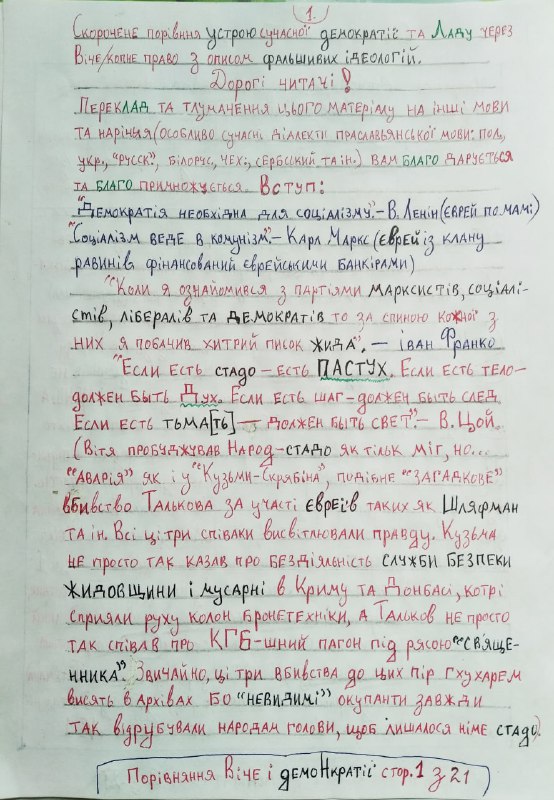 1.
Скорочене порівння устрою сучасної демократії та Ладу через
Віче/копне право з описом фальшивих ідеологій.
Дорогі читачі!
Переклад та тлумачення цього матеріалу на інші мови
та наріччя (особливо сучасні діалекти праславьянської мови: пол,
укр, "русск", білорус, чехі, сербський та ін.) вам благо дарується
та благо примножується. Вступ:
"Демократія необхідна для соціалізму".– В. Ленін (єврей по мамі)
"Соціалізм веде в комунізм".– Карл Маркс (єврей із клану
равинів фінансований єврейськими банкірами)
"Коли я ознайомився з партіями марксистів, соціалі-
стів, лібералів та демократів то за спиною кожної з
них я побачив хитрий писок жида". – Іван Франко
"Если есть стадо – есть ПАСТУХ. Если есть тело-
должен быть Дух. Если есть шаг – должен быть след.
Если есть тьма[ть] — должен быть свет".– В. Цой.
(Вітя пробуджував Народ-стадо як тільк міг, но...
"авария" як і у "Кузьми-Скрябіна", подібне "загадкове"
вбивство Талькова за участі євреїв таких як Шляфман
та ін. Всі ці три співаки висвітлювали правду. Кузьма
не просто так казав про бездіяльність служби безпеки
жидовщини і мусарні в Криму та Донбасі, котрі
сприяли руху колон бронетехніки, а Тальков не просто
так співав про КГБ-шний пагон під рясою "свяще-
нника". Звичайно, ці три вбивства до цих пір глухарем
висять в архівах бо "невидимі" окупанти завжди
так відрубували народам голови, щоб лишалося німе стадо).
Порівняння Віче і демоНкратії стор. 1 з 21